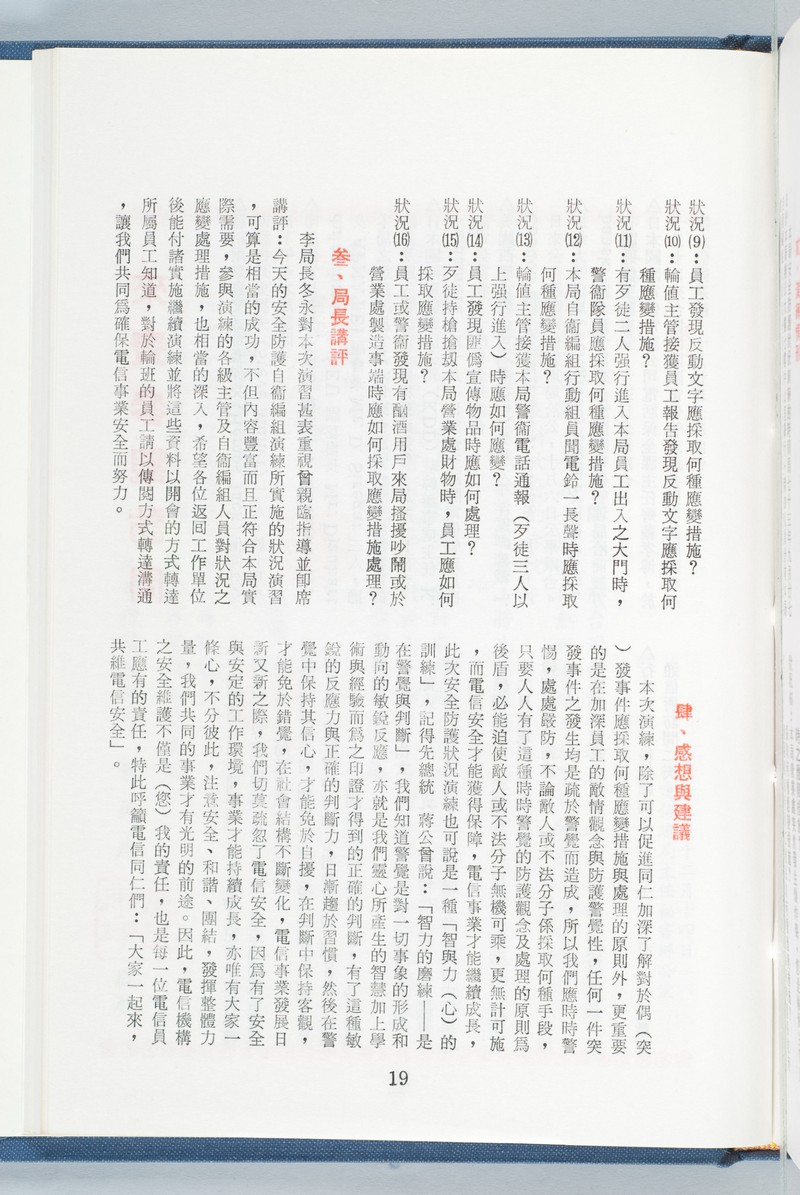 狀況⑼：員工發現反動文字應採取何種應變措施？
狀況⑽：輪値主管接獲員工報告發現反動文字應採取何
種應變措施？
狀況⑾：有歹徒二人强行進入本局員工出入之大門時，
警衞隊員應採取何種應變措施？
狀況⑿：本局自衞編組行動組員聞電鈴一長聲時應採取
何種應變措施？
狀況⒀：輪値主管接獲本局警衞電話通報（歹徒三人以
上强行進入）時應如何應變？
狀況⒁：員工發現匪僞宣傳物品時應如何處理？
狀況⒂：歹徒持槍搶刼本局營業處財物時，員工應如何
採取應變措施？
狀況⒃：員工或警衞發現有酗酒用戶來局搔擾吵鬧或於
營業處製造事端時應如何採取應變措施處理？
叁、局長講評
李局長冬永對本次演習甚表重視曾親臨指導並卽席
講評：今天的安全防護自衞編組演練所實施的狀況演習
，可算是相當的成功，不但內容豐富而且正符合本局實
際需要，參與演練的各級主管及自衞編組人員對狀況之
應變處理措施，也相當的深入，希望各位返回工作單位
後能付諸實施繼續演練並將這些資料以開會的方式轉達
所屬員工知道，對於輪班的員工請以傳閱方式轉達溝通
，讓我們共同爲確保電信事業安全而努力。
肆、感想與建議
本次演練，除了可以促進同仁加深了解對於偶（突
）發事件應採取何種應變措施與處理的原則外，更重要
的是在加深員工的敵情觀念與防護警覺性，任何一件突
發事件之發生均是疏於警覺而造成，所以我們應時時警
惕，處處嚴防，不論敵人或不法分子係採取何種手段，
只要人人有了這種時時警覺的防護觀念及處理的原則爲
後盾，必能迫使敵人或不法分子無機可乘，更無計可施
，而電信安全才能獲得保障，電信事業才能繼續成長，
此次安全防護狀況演練也可說是一種「智與力（心）的
訓練」，記得先總統　蔣公曾說：「智力的磨練——是
在警覺與判斷」，我們知道警覺是對一切事象的形成和
動向的敏銳反應，亦就是我們靈心所產生的智慧加上學
術與經驗而爲之印證才得到的正確的判斷，有了這種敏
銳的反應力與正確的判斷力，日漸趨於習慣，然後在警
覺中保持其信心，才能免於自擾，在判斷中保持客觀，
才能免於錯覺，在社會結構不斷變化，電信事業發展日
新又新之際，我們切莫疏忽了電信安全，因爲有了安全
與安定的工作環境，事業才能持續成長，亦唯有大家一
條心，不分彼此，注意安全、和諧、團結，發揮整體力
量，我們共同的事業才有光明的前途。因此，電信機構
之安全維護不僅是（您）我的責任，也是每一位電信員
工應有的責任，特此呼籲電信同仁們：「大家一起來，
共維電信安全」。
19